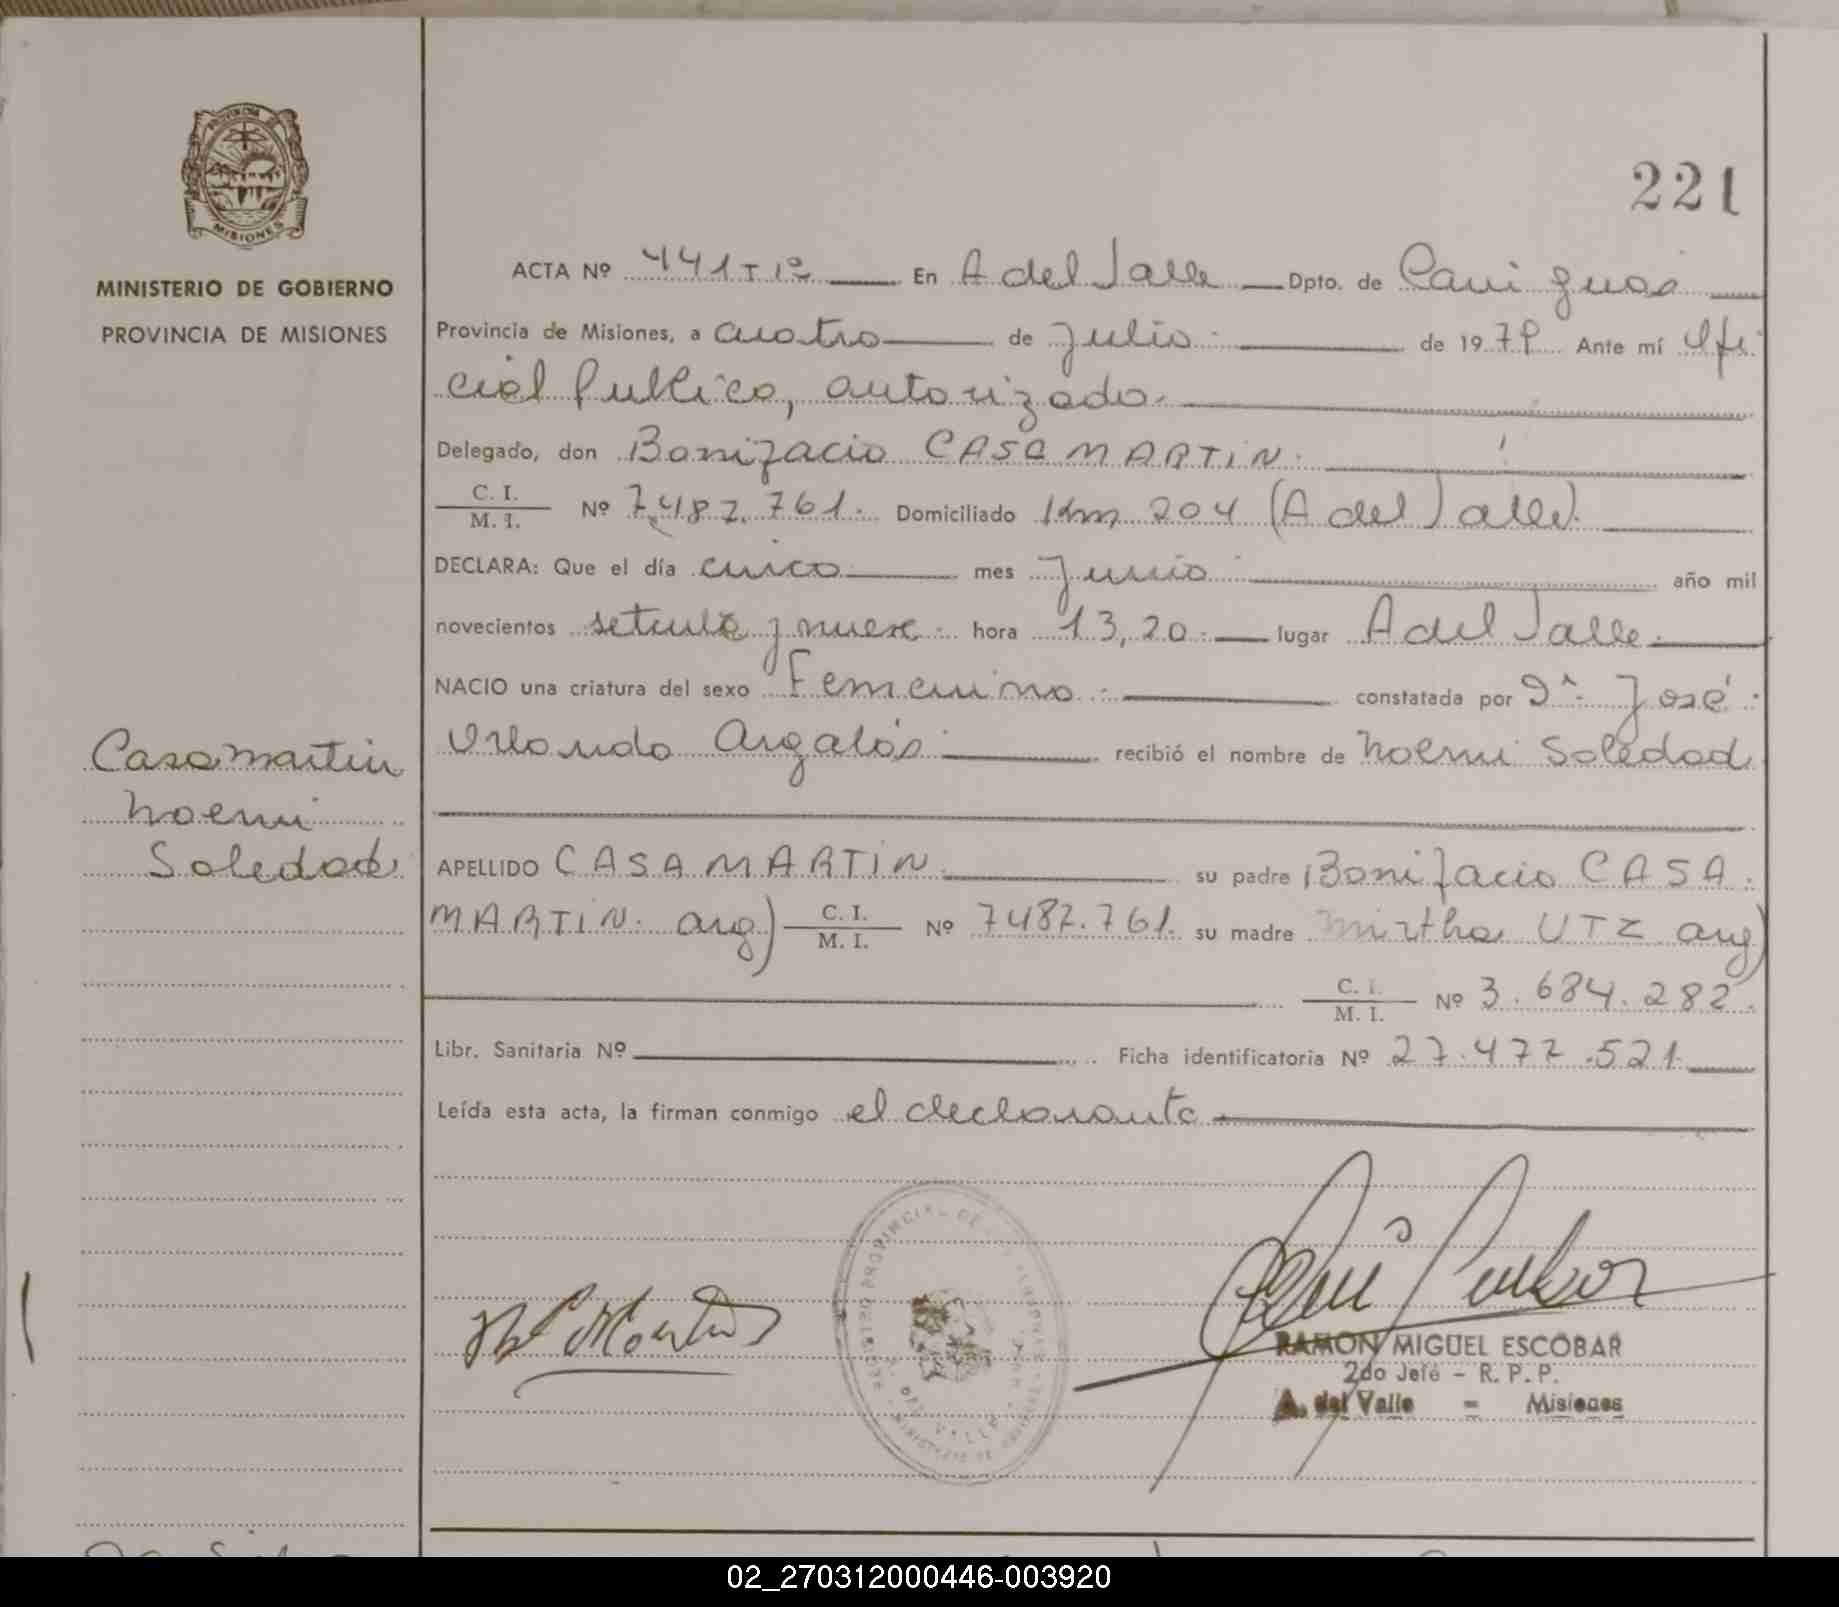 PROVINCIA DE
MISIONES
MINISTERIO DE GOBIERNO
PROVINCIA DE MISIONES
221
ACTA Nº 441-T 1º En A del Valle Dpto. de Cainguas
Provincia de Misiones, a cuatro de Julio de 1979 Ante mí Ofi
cial Publico, autorizado.
Delegado, don Bonifacio CASAMARTIN.
C. I.
M. I. Nº 7.487.761. Domiciliado Km 204 (A del Valle).
DECLARA: Que el día cinco mes Junio año mil
novecientos setenta y nueve. hora 13,20. lugar A del Valle.
NACIO una criatura del sexo Femenino. constatada por Dr. José
Orlando Argalás recibió el nombre de Noemi Soledad
Casamartin
Noemi
Soledad
APELLIDO CASAMARTIN. su padre Bonifacio CASA
MARTIN. arg) C. I.
M. I. Nº 7487.761. su madre Mirtha UTZ arg)
C. I.
M. I. Nº 3.684.282.
Libr. Sanitaria Nº Ficha identificatoria Nº 27.477.521.
Leída esta acta, la firman conmigo el declarante
REGISTRO PROVINCIAL DE
RAMON MIGUEL ESCOBAR
2do Jefe - R. P. P.
A. del Valle - Misiones
02_270312000446-003920